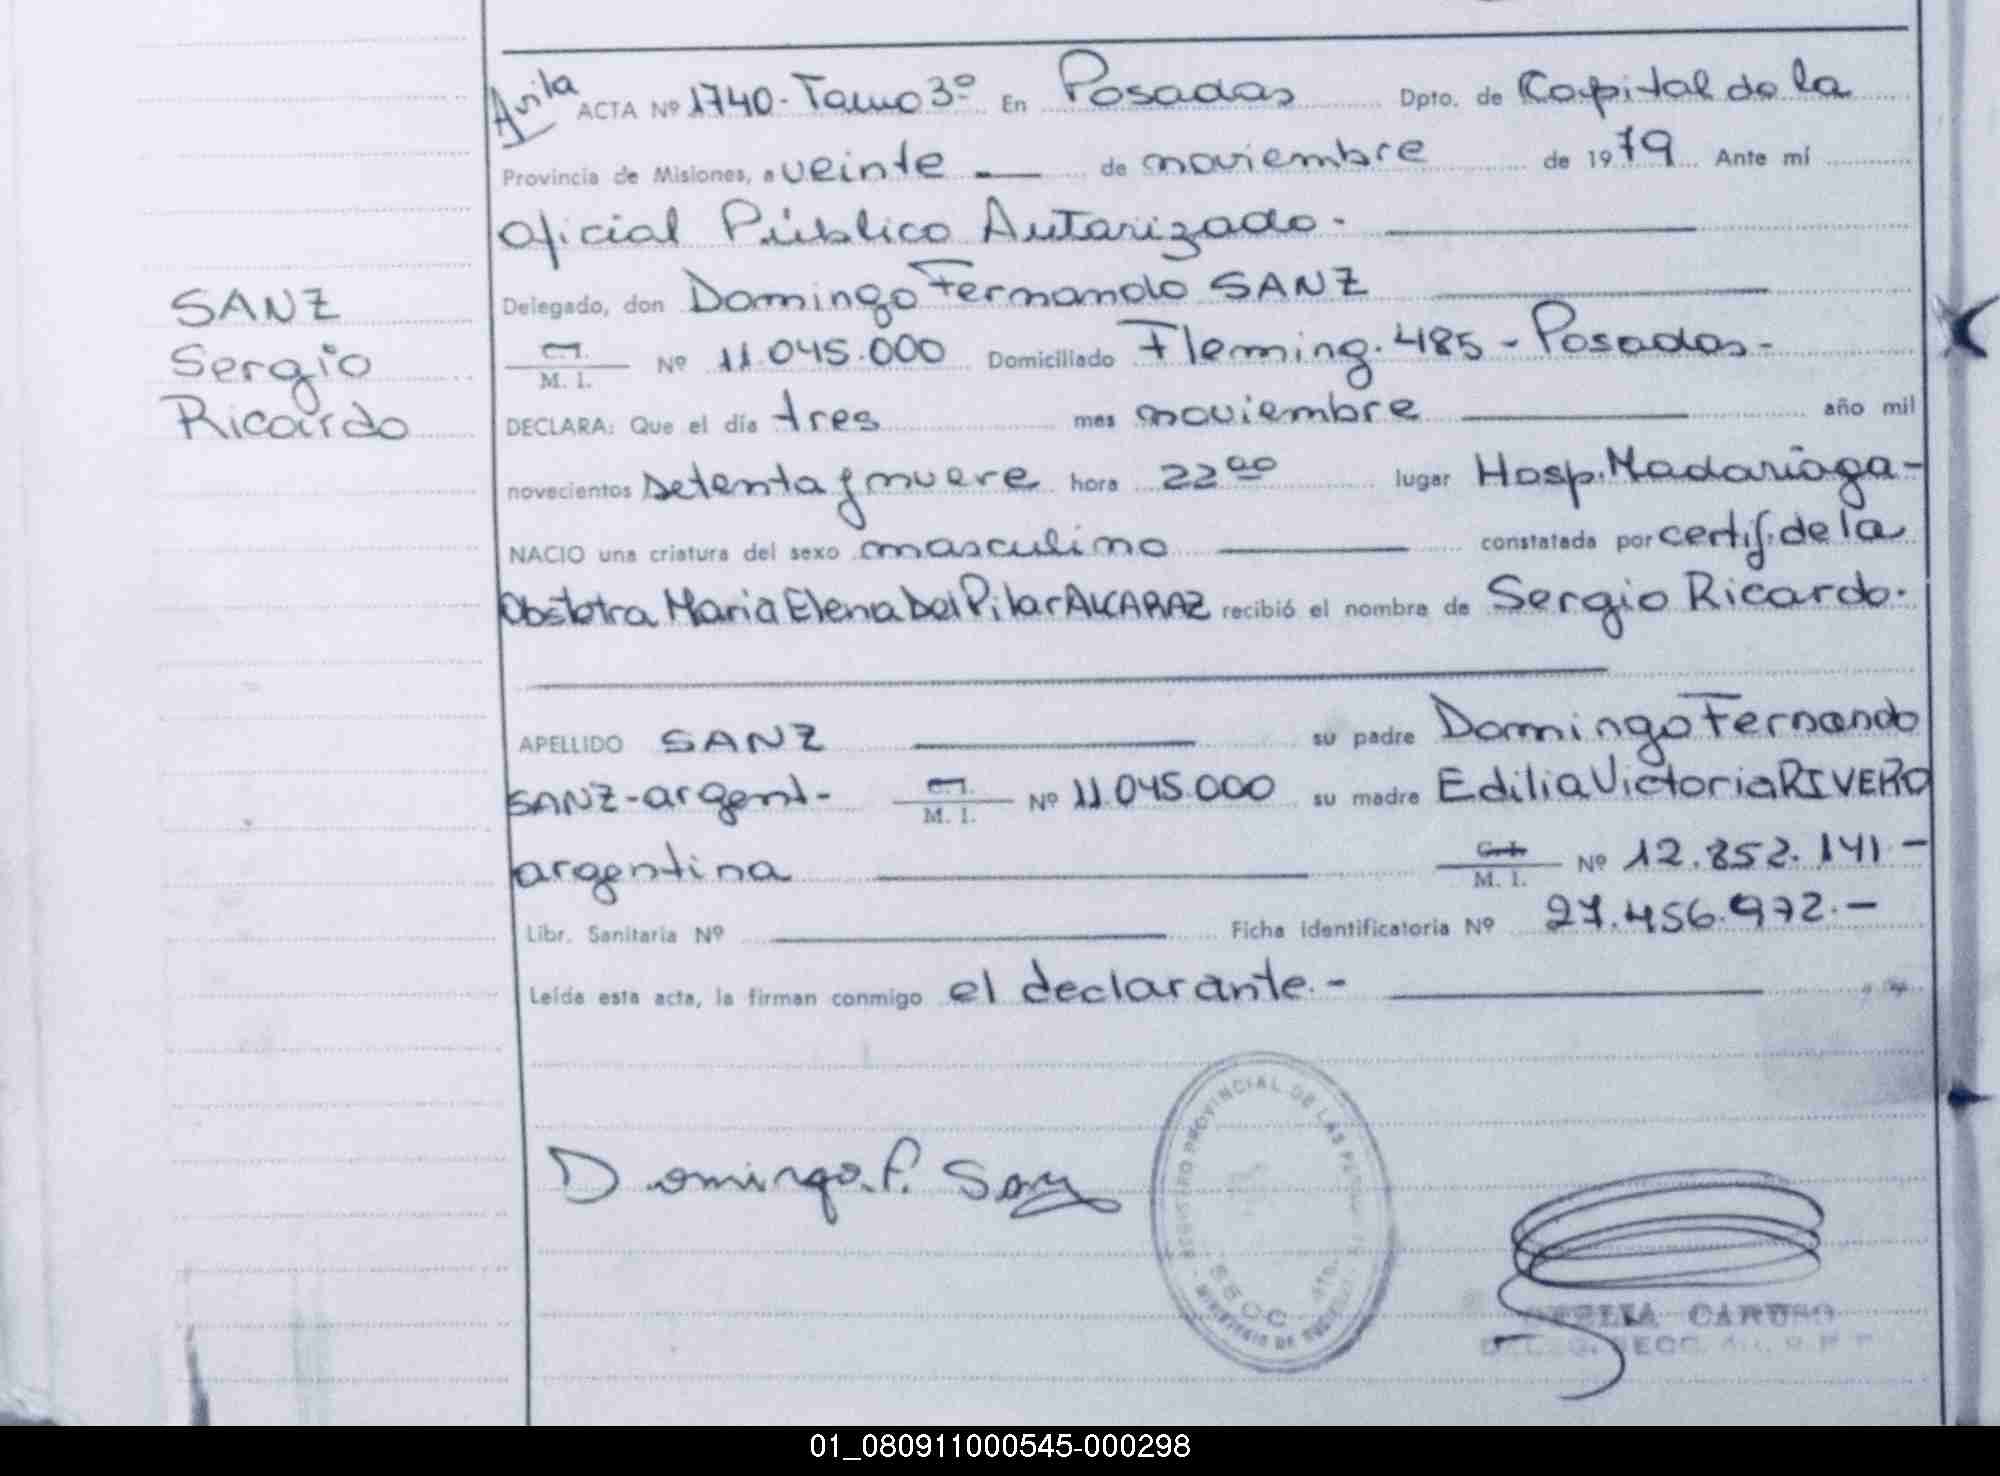 Avila ACTA Nº 1740- Tomo 3º En Posadas Dpto. de Capital de la
Provincia de Misiones, a veinte — de noviembre de 1979 Ante mí
Oficial Público Autorizado.-
Delegado, don Domingo Fernando SANZ
SANZ
Sergio
Ricardo
C.I. / M. I. Nº 11.045.000 Domiciliado Fleming. 485 - Posadas -
DECLARA: Que el día tres mes noviembre año mil
novecientos setenta y nueve hora 22 00 lugar Hosp. Madariaga -
NACIO una criatura del sexo masculino constatada por certif. de la
Obstetra Maria Elena Del Pilar ALCARAZ recibió el nombre de Sergio Ricardo.
APELLIDO SANZ su padre Domingo Fernando
SANZ - argent - C.I. / M. I. Nº 11.045.000 su madre Edilia Victoria RIVERO
argentina C.I. / M. I. Nº 12.852.141 -
Libr. Sanitaria Nº Ficha identificatoria Nº 27.456.972.-
Leída esta acta, la firman conmigo el declarante.-
Domingo F. Sanz
REGISTRO PROVINCIAL DE LAS PERSONAS
SECC.
MINISTERIO DE
CARUSO
SECC.
01_080911000545-000298